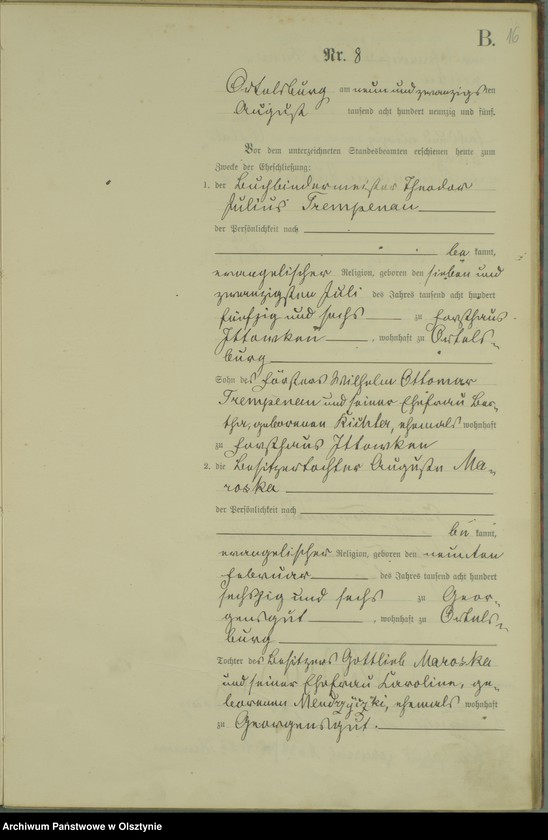 B. 16
Nr. 8
Ortelsburg am neun und zwanzigsten
August tausend acht hundert neunzig und fünf.
Vor dem unterzeichneten Standesbeamten erschienen heute zum
Zwecke der Eheschließung:
1. der Buchbindermeister Theodor
Julius Trempenau
der Persönlichkeit nach
be kannt,
evangelischer Religion, geboren den sieben und
zwanzigsten Juli des Jahres tausend acht hundert
fünfzig und sechs zu Forsthaus
Ittowken, wohnhaft zu Ortels-
burg
Sohn des Försters Wilhelm Ottomar
Trempenau und seiner Ehefrau Ber-
tha, geborenen Richter, ehemals wohnhaft
zu Forsthaus Ittowken
2. die Besitzertochter Auguste Ma-
roska
der Persönlichkeit nach
be kannt,
evangelischer Religion, geboren den neunten
Februar des Jahres tausend acht hundert
sechszig und sechs zu Geor-
gensgut, wohnhaft zu Ortels-
burg
Tochter des Besitzers Gottlieb Maroska
und seiner Ehefrau Caroline, ge-
borenen ehemals wohnhaft
zu Georgensgut.
Archiwum Państwowe w Olsztynie